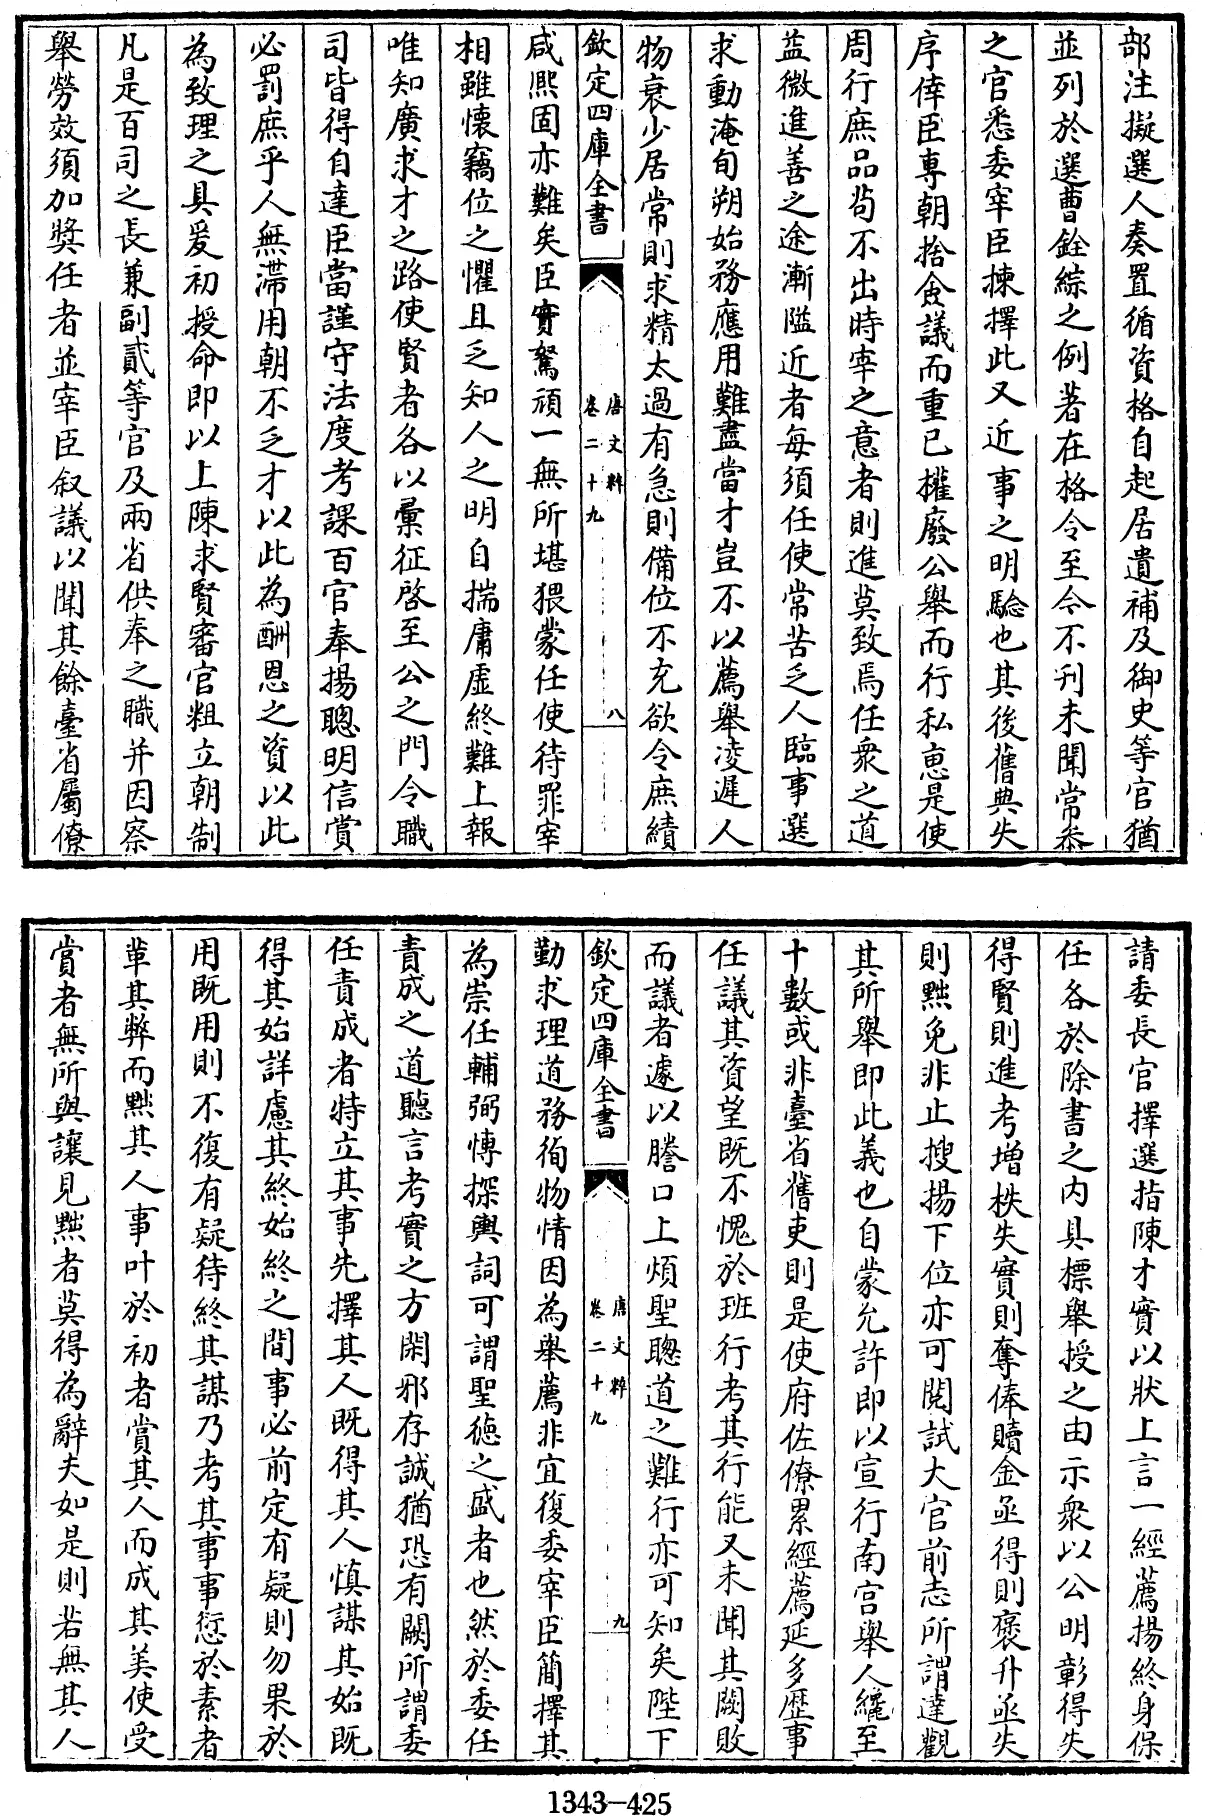 部注擬選人奏置循資格自起居遺補及御史等官猶
並列於選曹銓綜之例著在格令至今不刋未聞常叅
之官悉委宰臣揀擇此又近事之明驗也其後舊典失
序倖臣專朝捨僉議而重已權廢公舉而行私惠是使
周行庶品茍不出時宰之意者則進莫致焉任衆之道
益微進善之途漸隘近者每須任使常苦乏人臨事選
求動淹旬朔始務應用難盡當才豈不以薦舉凌遲人
物衰少居常則求精太過有急則備位不充欲令庶績
欽定四庫全書
唐文粹
卷二十九
八
咸熈固亦難矣臣實駑頑一無所堪猥蒙任使待罪宰
相雖懷竊位之懼且乏知人之明自揣庸虛終難上報
唯知廣求才之路使賢者各以彙征啓至公之門令職
司皆得自達臣當謹守法度考課百官奉揚聰明信賞
必罰庶乎人無滯用朝不乏才以此為酬恩之資以此
為致理之具爰初授命即以上陳求賢審官粗立朝制
凡是百司之長兼副貳等官及兩省供奉之職并因察
舉勞效須加奬任者並宰臣叙議以聞其餘臺省屬僚
請委長官擇選指陳才實以狀上言一經薦揚終身保
任各於除書之内具標舉授之由示衆以公明彰得失
得賢則進考增秩失實則奪俸贖金亟得則褒升亟失
則黜免非止搜揚下位亦可閱試大官前志所謂達觀
其所舉即此義也自蒙允許即以宣行南宫舉人纔至
十數或非臺省舊吏則是使府佐僚累經薦延多歴事
任議其資望既不愧於班行考其行能又未聞其闕敗
而議者遽以騰口上煩聖聰道之難行亦可知矣陛下
欽定四庫全書
唐文粹
卷二十九
九
勤求理道務徇物情因為舉薦非宜復委宰臣簡擇其
為崇任輔弼愽採輿詞可謂聖徳之盛者也然於委任
責成之道聽言考實之方閑邪存誠猶恐有闕所謂委
任責成者特立其事先擇其人既得其人慎謀其始既
得其始詳慮其終始終之間事必前定有疑則勿果於
用既用則不復有疑待終其謀乃考其事事愆於素者
革其弊而黜其人事叶於初者賞其人而成其美使受
賞者無所與讓見黜者莫得為辭夫如是則若無其人
1343-425